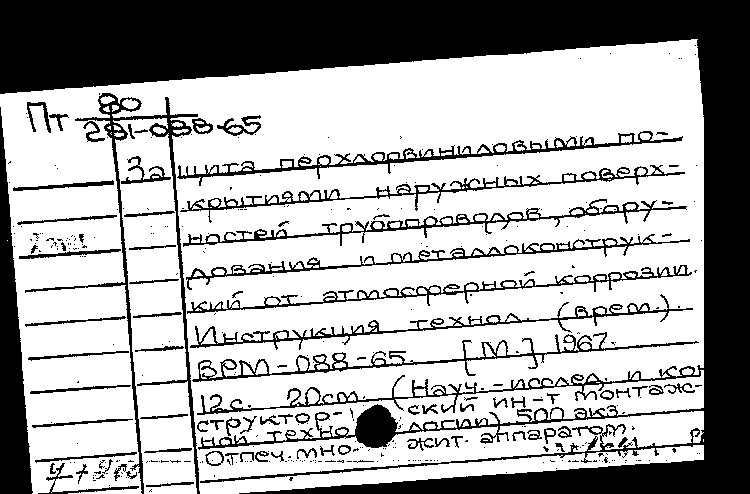 Пт 80
281-088-65
Защита перхлорвиниловыми по-
крытиями наружных поверх-
ностей трубопроводов, обору-
дования и металлоконструк-
ций от атмосферной коррозии.
Инструкция технол. (врем.).
ВРМ-088-65. [М.], 1967.
12 с. 20 см. (Науч.-исслед. и кон
структор- ский ин-т монтаж-
ной техно логии) 500 экз.
Отпеч. мно- жит. аппаратом.